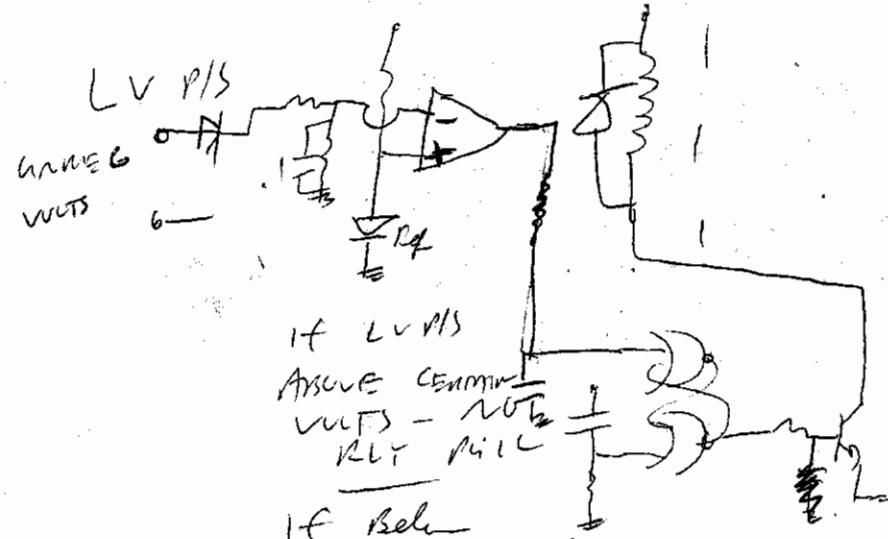 LV P/S
VOLTS
-
+
.1
Ref
If LV P/S
ABOVE CERTAIN
VOLTS - NOT
RLY PULL
If Below